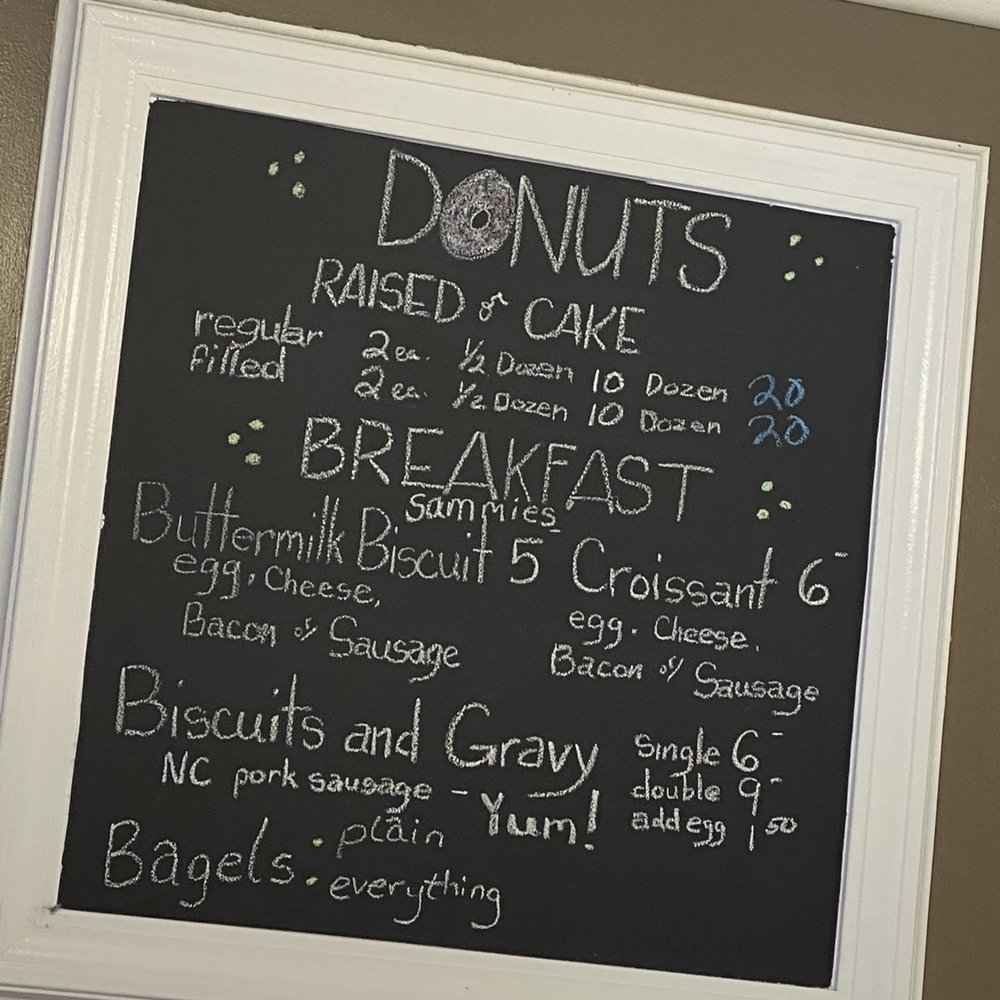 DONUTS
RAISED or CAKE
regular 2 ea. 1/2 Dozen 10 Dozen 20
filled 2 ea. 1/2 Dozen 10 Dozen 20
BREAKFAST
Sammies
Buttermilk Biscuit 5 Croissant 6-
egg, Cheese,
Bacon or Sausage
egg. Cheese.
Bacon or Sausage
Biscuits and Gravy single 6-
NC pork sausage - Yum! double 9-
add egg 1 50
Bagels: plain
everything